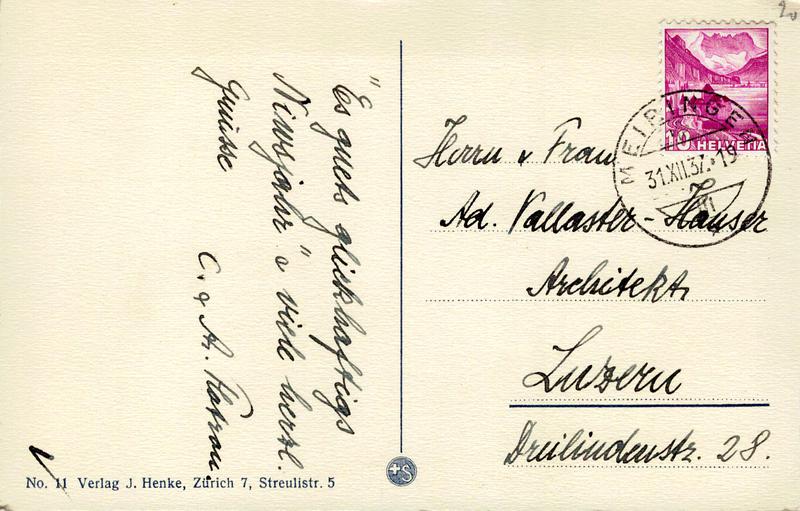 20
"Es guets glickhaftigs
Niwsjahr" & viele herzl.
Grüsse
C. & A.
No. 11 Verlag J. Henke, Zürich 7, Streulistr. 5
+S
10 HELVETIA
MEIRINGEN
31.XII.37.-19
Herrn v Frau
Ad. Vallaster-Hauser
Architekt,
Luzern
Dreilindenstr. 28.